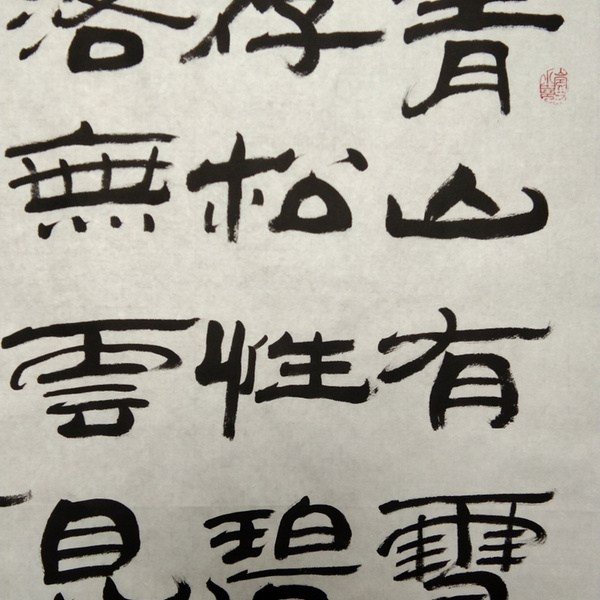 青山有雪
存松性碧
落無雲見